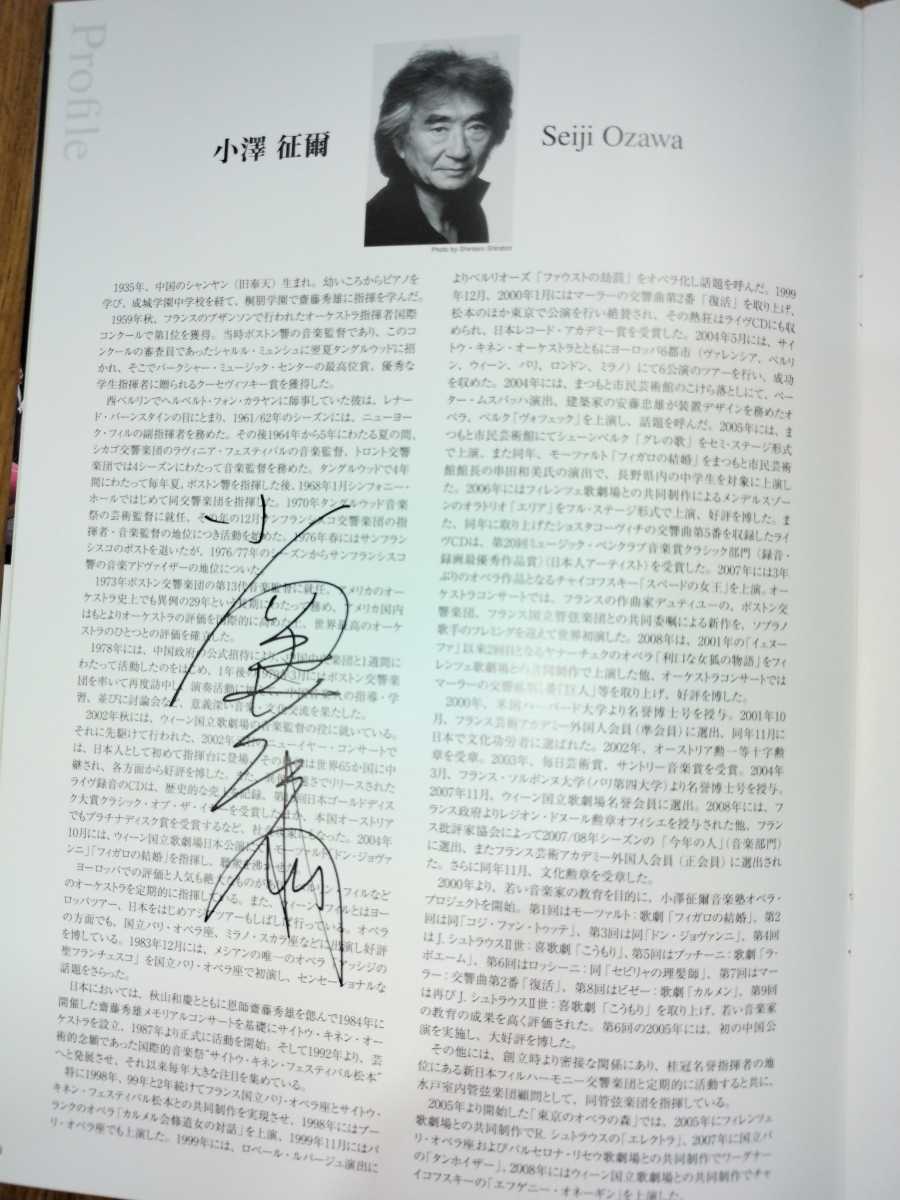 Profile
小澤 征爾
Seiji Ozawa
Photo by Shintaro Shiratori
1935年、中国のシャンヤン（旧奉天）生まれ。幼いころからピアノを
学び、成城学園中学校を経て、桐朋学園で齋藤秀雄に指揮を学んだ。
1959年秋、フランスのブザンソンで行われたオーケストラ指揮者国際
コンクールで第1位を獲得。当時ボストン響の音楽監督であり、このコ
ンクールの審査員であったシャルル・ミュンシュに翌夏タングルウッドに招
かれ、そこでバークシャー・ミュージック・センターの最高位賞、優秀な
学生指揮者に贈られるクーセヴィツキー賞を獲得した。
西ベルリンでヘルベルト・フォン・カラヤンに師事していた彼は、レナー
ド・バーンスタインの目にとまり、1961/62年のシーズンには、ニューヨー
ク・フィルの副指揮者を務めた。その後1964年から5年にわたる夏の間、
シカゴ交響楽団のラヴィニア・フェスティバルの音楽監督、トロント交響
楽団では4シーズンにわたって音楽監督を務めた。タングルウッドで4年
間にわたって毎年夏、ボストン響を指揮した後、1968年1月シンフォニー・
ホールではじめて同交響楽団を指揮した。1970年タングルウッド音楽
祭の芸術監督に就任、その年の12月サンフランシスコ交響楽団の指
揮者・音楽監督の地位につき活動を始めた。1976年春にはサンフラン
シスコのポストを退いたが、1976/77年のシーズンからサンフランシスコ
響の音楽アドヴァイザーの地位についた。
1973年ボストン交響楽団の第13代音楽監督に就任、アメリカのオー
ケストラ史上でも異例の29年という長期にわたって務め、アメリカ国内
はもとよりオーケストラの評価を国際的に高めたし、世界最高のオーケ
ストラのひとつとの評価を確立した。
1978年には、中国政府の公式招待により、中国中央楽団と1週間に
わたって活動したのをはじめ、1年後の1979年3月にはボストン交響楽
団を率いて再度訪中し、演奏活動に の指導・学
習、並びに討論会など、意義深い音楽・文化交流を果たした。
2002年秋には、ウィーン国立歌劇場の音楽監督の役に就いている。
それに先駆けて行われた、2002年 のニューイヤー・コンサートで
は、日本人として初めて指揮台に登場。その は世界65か国に中
継され、各方面から好評を博した。また、 でリリースされた
ライヴ録音のCDは、歴史的な売上を記録、第 回日本ゴールドディス
ク大賞クラシック・オブ・ザ・イヤーを受賞したほか、本国オーストリア
でもプラチナディスク賞を受賞するなど、社 なった。2004年
10月には、ウィーン国立歌劇場日本公演 モーツァルト「ドン・ジョヴァ
ンニ」「フィガロの結婚」を指揮し、聴衆を沸かせた。
ヨーロッパでの評価と人気も絶大なものが ルリン・フィルなど
のオーケストラを定期的に指揮している。また、ウィーン・フィルとはヨー
ロッパツアー、日本をはじめアジアツアーもしばしば行っている。オペラ
の方面でも、国立パリ・オペラ座、ミラノ・スカラ座などに出演し好評
を博している。1983年12月には、メシアンの唯一のオペラ「アッシジの
聖フランチェスコ」を国立パリ・オペラ座で初演し、センセーショナルな
話題をさらった。
日本においては、秋山和慶とともに恩師齋藤秀雄を偲んで1984年に
開催した齋藤秀雄メモリアルコンサートを基礎にサイトウ・キネン・オー
ケストラを設立、1987年より正式に活動を開始。そして1992年より、芸
術的念願であった国際的音楽祭“サイトウ・キネン・フェスティバル松本”
へと発展させ、それ以来毎年大きな注目を集めている。
特に1998年、99年と2年続けてフランス国立パリ・オペラ座とサイトウ・
キネン・フェスティバル松本との共同制作を実現させ、1998年にはプー
ランクのオペラ「カルメル会修道女の対話」を上演、1999年11月にはパ
リ・オペラ座でも上演した。1999年には、ロベール・ルパージュ演出に
よりベルリオーズ「ファウストの劫罰」をオペラ化し話題を呼んだ。1999
年12月、2000年1月にはマーラーの交響曲第2番「復活」を取り上げ、
松本のほか東京で公演を行い絶賛され、その熱狂はライヴCDにも収
められ、日本レコード・アカデミー賞を受賞した。2004年5月には、サイ
トウ・キネン・オーケストラとともにヨーロッパ6都市（ヴァレンシア、ベルリ
ン、ウィーン、パリ、ロンドン、ミラノ）にて6公演のツアーを行い、成功
を収めた。2004年には、まつもと市民芸術館のこけら落としにて、ペー
ター・ムスバッハ演出、建築家の安藤忠雄が装置デザインを務めたオ
ペラ、ベルク「ヴォツェック」を上演し、話題を呼んだ。2005年には、ま
つもと市民芸術館にてシェーンベルク「グレの歌」をセミ・ステージ形式
で上演、また同年、モーツァルト「フィガロの結婚」をまつもと市民芸術
館館長の串田和美氏の演出で、長野県内の中学生を対象に上演し
た。2006年にはフィレンツェ歌劇場との共同制作によるメンデルスゾー
ンのオラトリオ「エリア」をフル・ステージ形式で上演、好評を博した。ま
た、同年に取り上げたショスタコーヴィチの交響曲第5番を収録したライ
ヴCDは、第20回ミュージック・ペンクラブ音楽賞クラシック部門（録音・
録画最優秀作品賞）（日本人アーティスト）を受賞した。2007年には3年
ぶりのオペラ作品となるチャイコフスキー「スペードの女王」を上演。オー
ケストラコンサートでは、フランスの作曲家デュティユーの、ボストン交
響楽団、フランス国立管弦楽団との共同委嘱による新作を、ソプラノ
歌手のフレミングを迎えて世界初演した。2008年は、2001年の「イェヌー
ファ」以来2回目となるヤナーチェクのオペラ「利口な女狐の物語」をフィ
レンツェ歌劇場との共同制作で上演した他、オーケストラコンサートでは
マーラーの交響曲第1番「巨人」等を取り上げ、好評を博した。
2000年、米国ハーバード大学より名誉博士号を授与。2001年10
月、フランス芸術アカデミー外国人会員（準会員）に選出、同年11月に
日本で文化功労者に選ばれた。2002年、オーストリア勲一等十字勲
章を受章。2003年、毎日芸術賞、サントリー音楽賞を受賞。2004年
3月、フランス・ソルボンヌ大学（パリ第四大学）より名誉博士号を授与。
2007年11月、ウィーン国立歌劇場名誉会員に選出。2008年には、フ
ランス政府よりレジオン・ドヌール勲章オフィシエを授与された他、フラン
ス批評家協会によって2007/08年シーズンの「今年の人」（音楽部門）
に選出、またフランス芸術アカデミー外国人会員（正会員）に選出され
た。さらに同年11月、文化勲章を受章した。
2000年より、若い音楽家の教育を目的に、小澤征爾音楽塾オペラ・
プロジェクトを開始。第1回はモーツァルト：歌劇「フィガロの結婚」、第2
回は同「コジ・ファン・トゥッテ」、第3回は同「ドン・ジョヴァンニ」、第4回
はJ.シュトラウスII世：喜歌劇「こうもり」、第5回はプッチーニ：歌劇「ラ・
ボエーム」、第6回はロッシーニ：同「セビリャの理髪師」、第7回はマー
ラー：交響曲第2番「復活」、第8回はビゼー：歌劇「カルメン」、第9回
は再びJ.シュトラウスII世：喜歌劇「こうもり」を取り上げ、若い音楽家
の教育の成果を高く評価された。第6回の2005年には、初の中国公
演を実施し、大好評を博した。
その他には、創立時より密接な関係にあり、桂冠名誉指揮者の地
位にある新日本フィルハーモニー交響楽団と定期的に活動すると共に、
水戸室内管弦楽団顧問として、同管弦楽団を指揮している。
2005年より開始した「東京のオペラの森」では、2005年にフィレンツェ
歌劇場との共同制作でR.シュトラウスの「エレクトラ」、2007年に国立パ
リ・オペラ座およびバルセロナ・リセウ歌劇場との共同制作でワーグナー
の「タンホイザー」、2008年にはウィーン国立歌劇場との共同制作でチャ
イコフスキーの「エフゲニー・オネーギン」を上演した。
小澤征爾